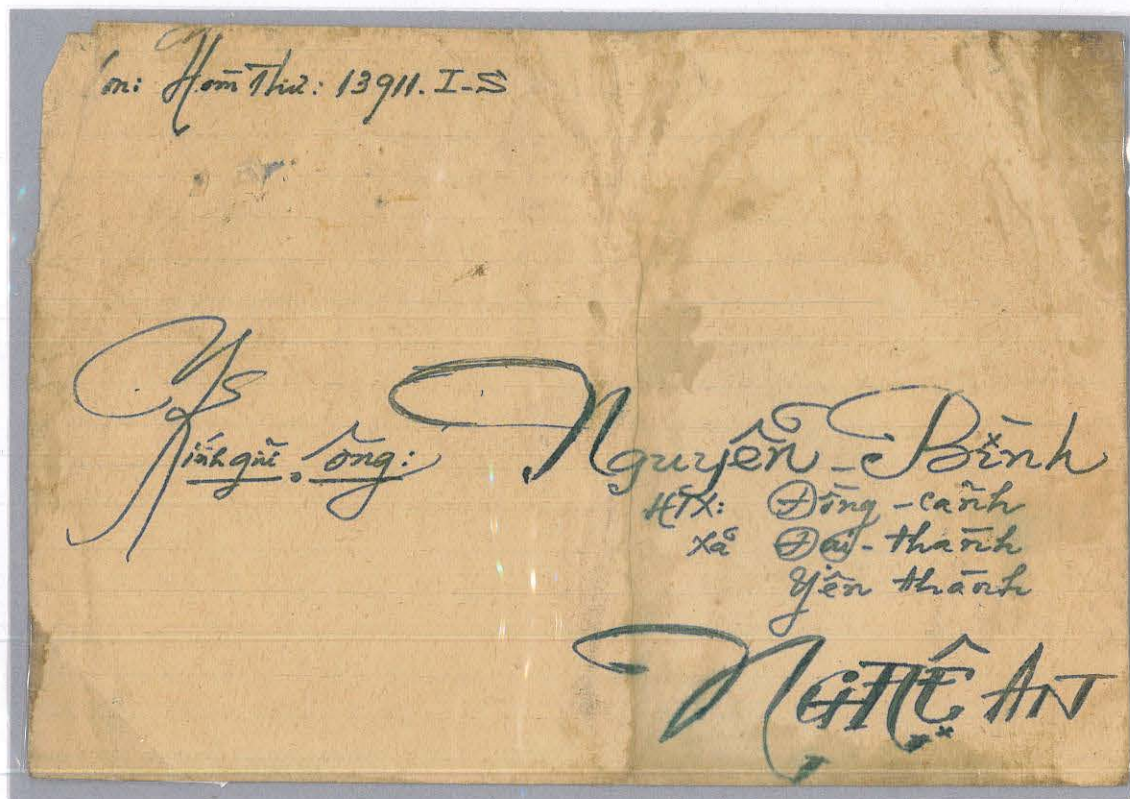 Hòm Thư: 13911. I-S
Kính gửi. Ông: Nguyễn - Bình
HTX: Đồng - cảnh
xã Đại - thành
Yên thành
NGHỆ AN